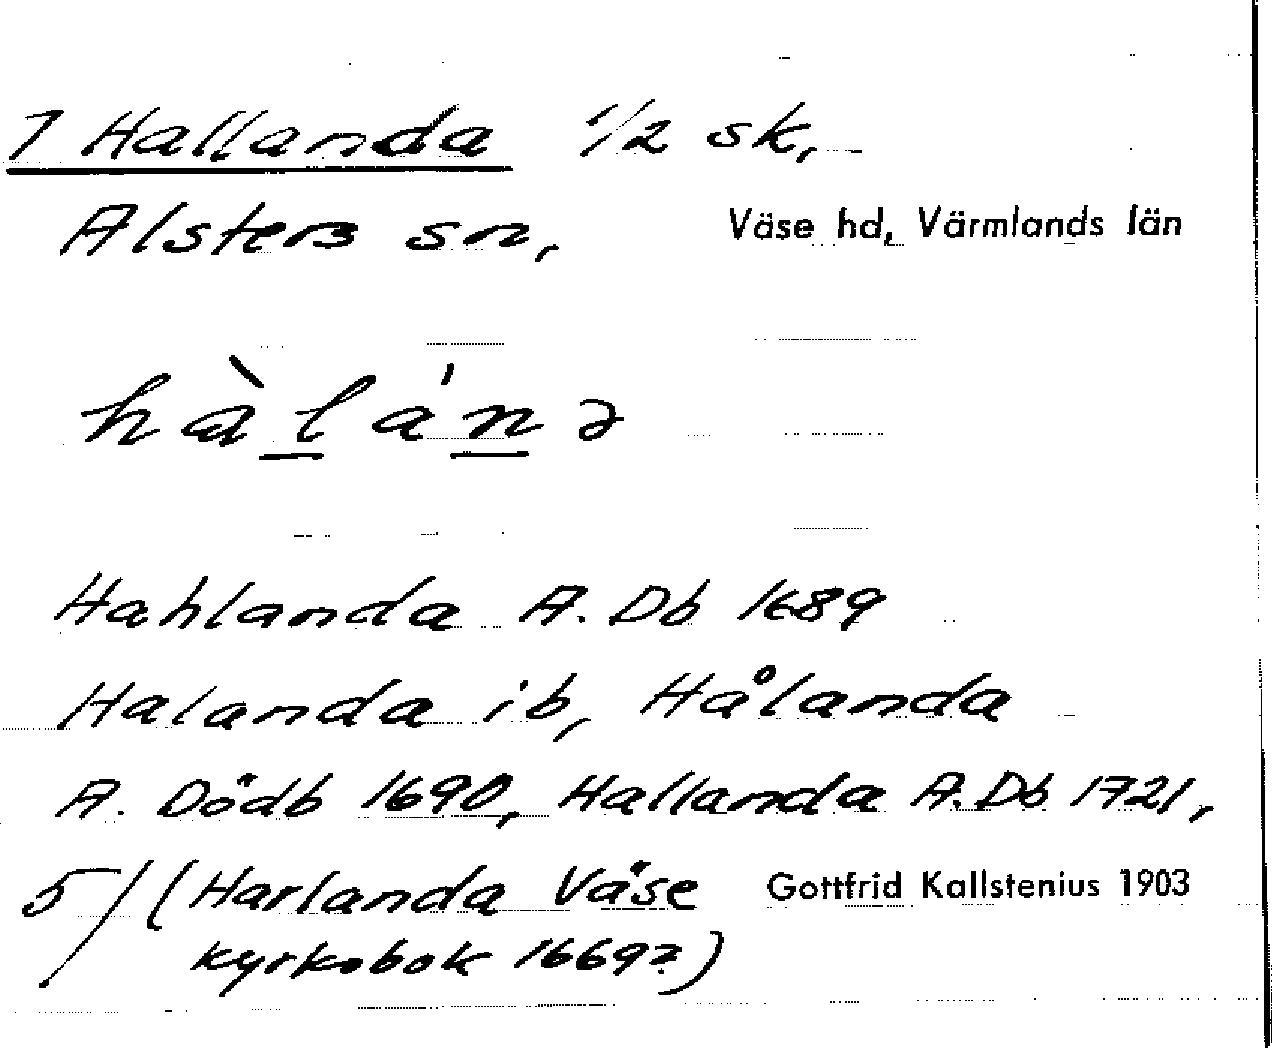 7 Hallanda 1/2 sk,
Alsters sn, Väse hd, Värmlands län
hàlánə
Hahlanda A. Db 1689
Halanda ib, Hålanda
A. Dödb 1690, Hallanda A. Db 1721,
5/ (Harlanda Väse Gottfrid Kallstenius 1903
kyrkobok 1669?)